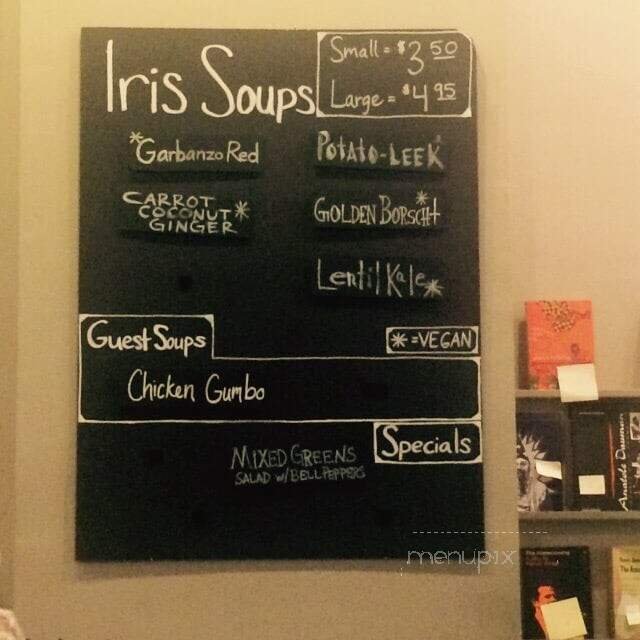 Iris Soups
Small = $3 50
Large = $4 95
*Garbanzo Red
POTATO-LEEK
CARROT
COCONUT*
GINGER
GOLDEN BORSCHT*
Lentil Kale*
Guest Soups
* = VEGAN
Chicken Gumbo
Specials
MIXED GREENS
SALAD w/ BELL PEPPERS
menupix